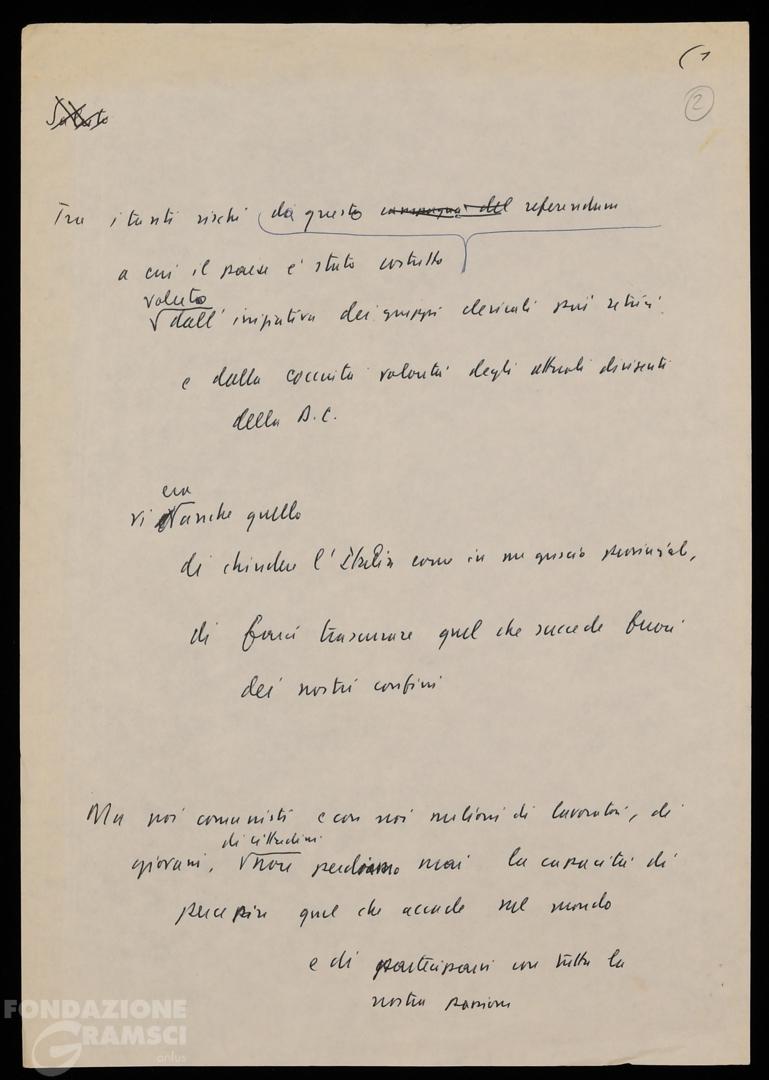 (1
2
Saluto
Tra i tanti rischi di questo campagna del referendum
a cui il paese è stato costretto
voluto
dall'iniziativa dei gruppi clericali più retrivi
e dalla cocciuta volontà degli attuali dirigenti
della D.C.
era
vi anche quello
di chiudere l'Italia come in un guscio provinciale,
di farci trascurare quel che succede fuori
dei nostri confini
Ma noi comunisti e con noi milioni di lavoratori, di
di cittadini
giovani, non perdiamo mai la capacità di
percepire quel che accade nel mondo
e di parteciparvi con tutta la
nostra passione
FONDAZIONE
GRAMSCI
onlus